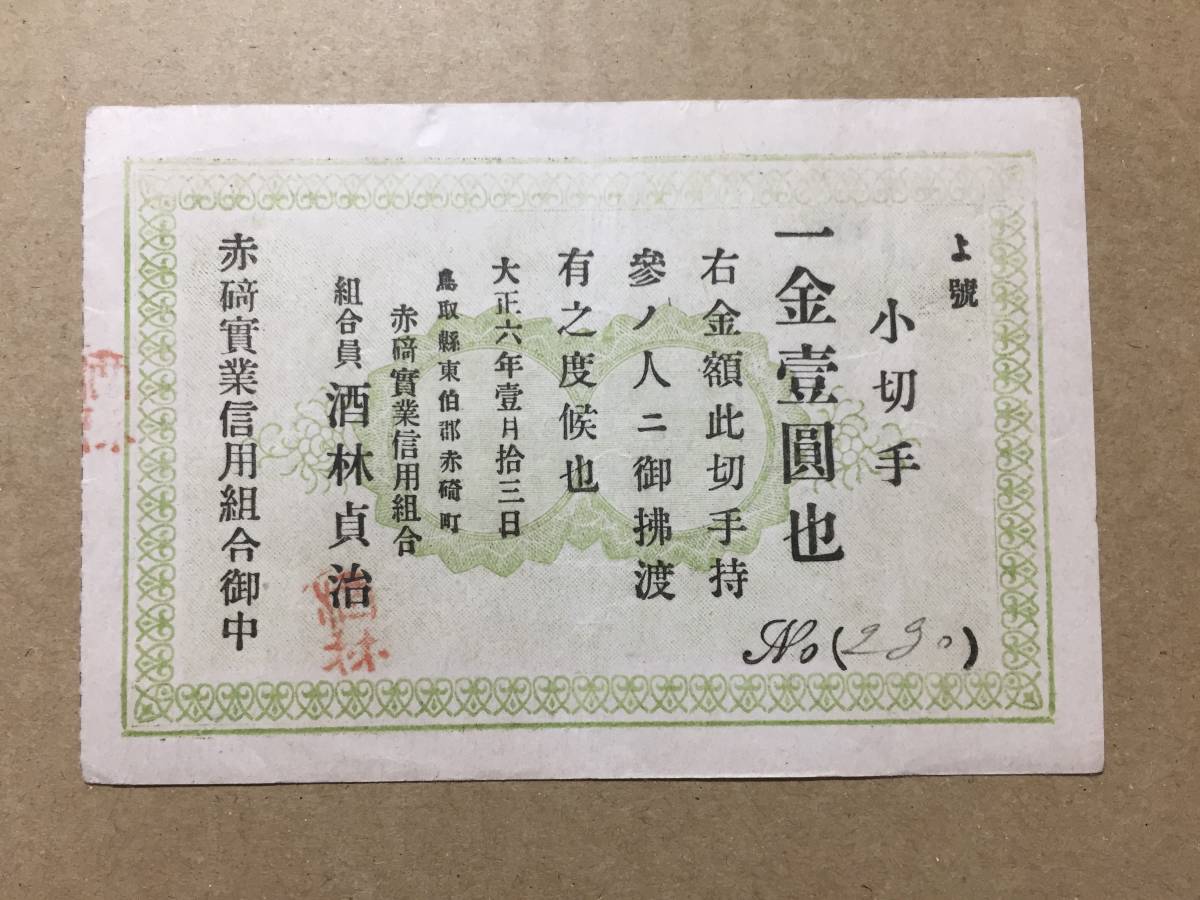 よ號
小切手
一金壹圓也
右金額此切手持
參ノ人ニ御拂渡
有之度候也
大正六年壹月拾三日
鳥取縣東伯郡赤碕町
赤碕實業信用組合
組合員 酒林貞治
酒林
赤碕實業信用組合御中
No(230)